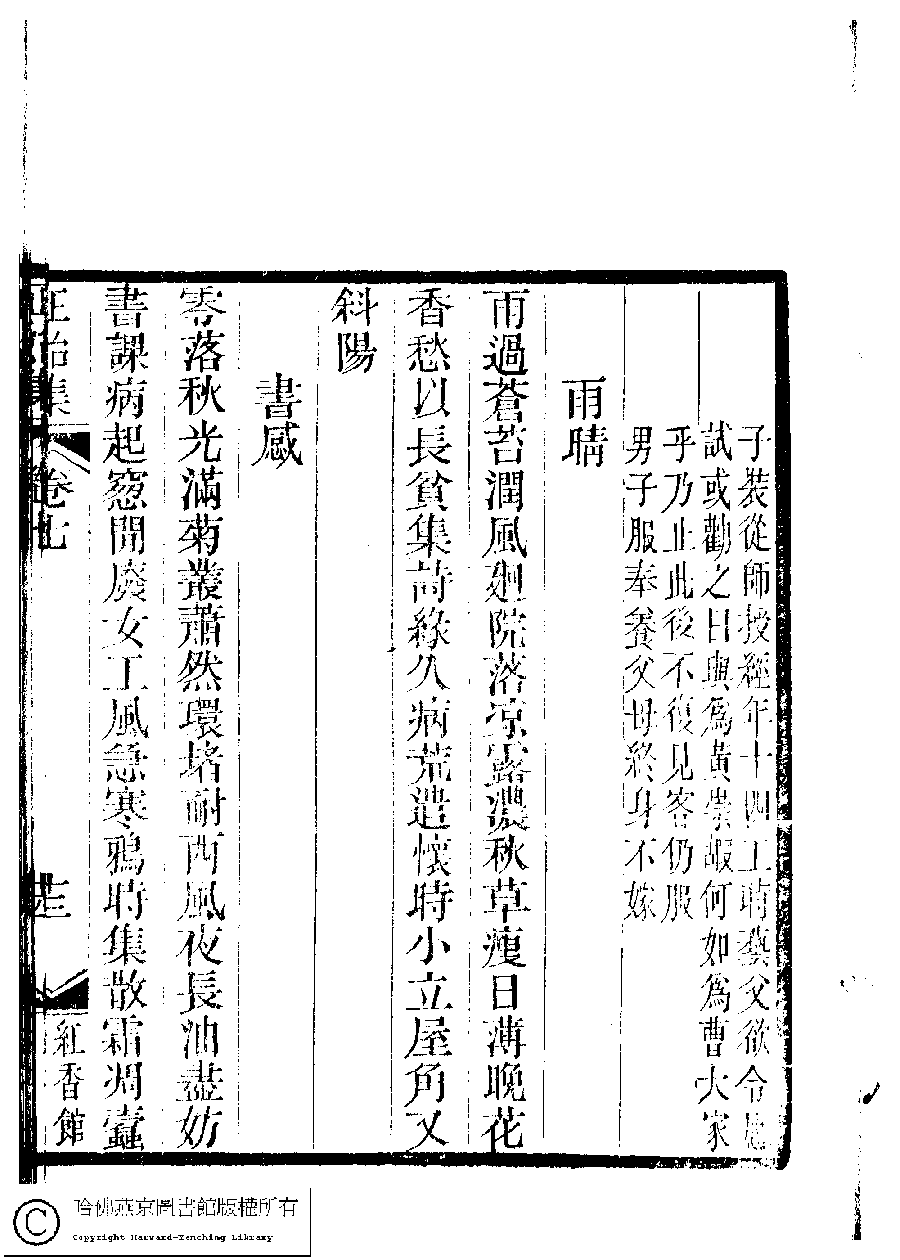 子裝從師授經年十四工時藝父欲令應
試或勸之曰與爲黃崇嘏何如爲曹大家
乎乃止此後不復見客仍服
男子服奉養父母終身不嫁
雨晴
雨過蒼苔潤風廻院落凉露濃秋草瘦日薄晚花
香愁以長貧集詩緣久病荒遣懷時小立屋角又
斜陽
書感
零落秋光滿菊叢蕭然環堵耐西風夜長油盡妨
書課病起窓間廢女工風急寒鴉時集散霜凋蠹
正始集
卷七
十三
紅香館
哈佛燕京圖書館版權所有
Copyright Harvard-Yenching Library